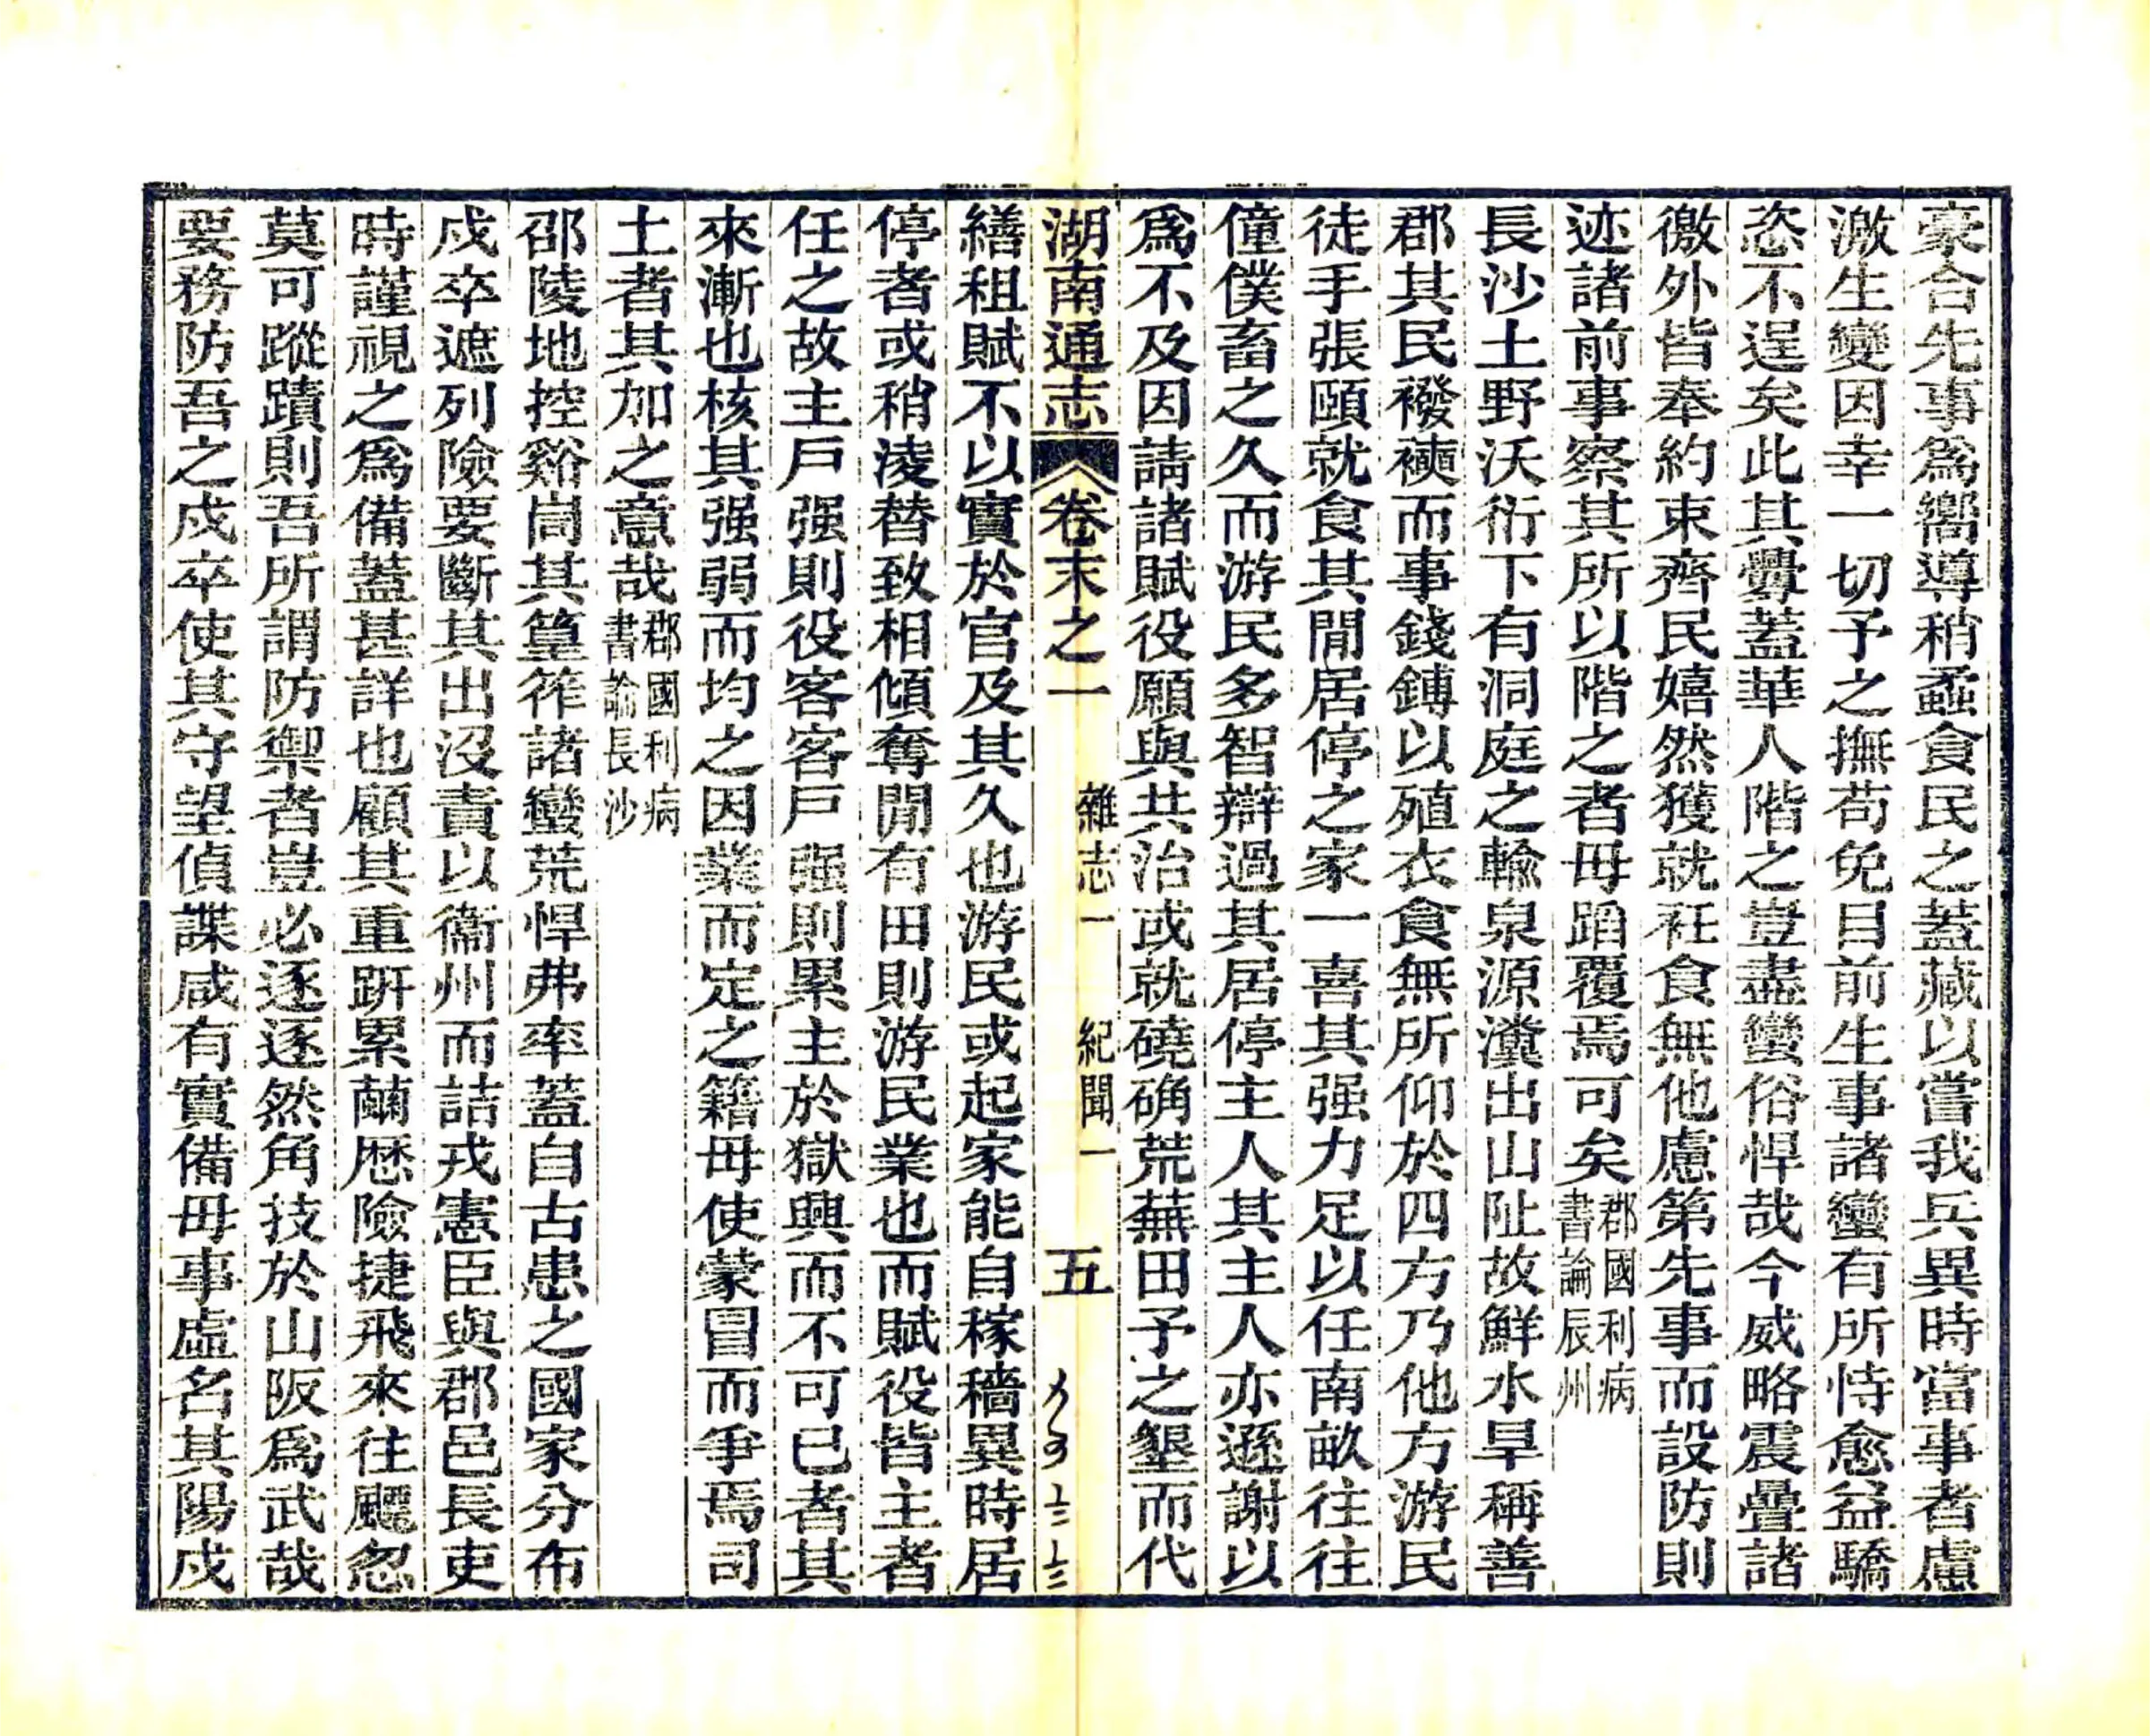 豪合先事爲嚮導稍蝥食民之蓋藏以嘗我兵異時當事者慮
激生變因幸一切予之撫苟免目前生事諸蠻有所恃愈益驕
恣不逞矣此其釁蓋華人階之豈盡蠻俗悍哉今威略震疊諸
徼外皆奉約束齊民嬉然獲就衽食無他慮第先事而設防則
迹諸前事察其所以階之者毋蹈覆焉可矣郡國利病書論辰州
長沙土野沃衍下有洞庭之輸泉源瀵出山阯故鮮水旱稱善
郡其民襏襫而事錢鎛以殖衣食無所仰於四方乃他方游民
徒手張頤就食其閒居停之家一喜其强力足以任南畝往往
僮僕畜之久而游民多智辯過其居停主人其主人亦遜謝以
爲不及因請諸賦役願與共治或就磽确荒蕪田予之墾而代
湖南通志 卷末之一 雜志一 紀聞一 五
繕租賦不以實於官及其久也游民或起家能自稼穡異時居
停者或稍淩替致相傾奪閒有田則游民業也而賦役皆主者
任之故主戶强則役客客戶强則累主於獄興而不可已者其
來漸也核其强弱而均之因業而定之籍毋使蒙冒而爭焉司
土者其加之意哉郡國利病書論長沙
邵陵地控谿峝其篁筰諸蠻荒悍弗率蓋自古患之國家分布
戍卒遮列險要斷其出沒責以衞州而詰戎憲臣與郡邑長吏
時謹視之爲備蓋甚詳也顧其重趼累繭歷險捷飛來往飂忽
莫可蹤蹟則吾所謂防禦者豈必逐逐然角技於山阪爲武哉
要務防吾之戍卒使其守望偵諜咸有實備毋事虛名其陽戍